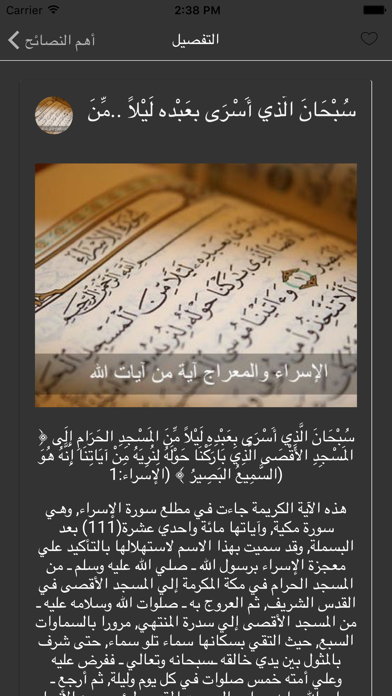 Carrier 2:38 PM
أهم النصائح التفصيل
سُبْحَانَ الَّذي أَسْرَى بعَبْده لَيْلاً ..مِّنَ
سورة الإسراء
بسم الله الرحمن الرحيم
الإسراء والمعراج آية من آيات الله
سُبْحَانَ الَّذِي أَسْرَى بِعَبْدِهِ لَيْلاً مِّنَ المَسْجِدِ الحَرَامِ إِلَى ﴿
المَسْجِدِ الأَقْصَى الَّذِي بَارَكْنَا حَوْلَهُ لِنُرِيَهُ مِنْ آيَاتِنَا إِنَّهُ هُوَ
السَّمِيعُ البَصِيرُ ﴾ (الإسراء:1)
هذه الآية الكريمة جاءت في مطلع سورة الإسراء, وهي
سورة مكية, وآياتها مائة واحدي عشرة(111) بعد
البسملة, وقد سميت بهذا الاسم لاستهلالها بالتأكيد علي
معجزة الإسراء برسول الله ـ صلي الله عليه وسلم ـ من
المسجد الحرام في مكة المكرمة إلي المسجد الأقصى في
القدس الشريف, ثم العروج به ـ صلوات الله وسلامه عليه ـ
من المسجد الأقصى إلي سدرة المنتهي, مرورا بالسماوات
السبع, حيث التقي بسكانها سماء تلو سماء, حتى شرف
بالمثول بين يدي خالقه ـسبحانه وتعالي ـ ففرض عليه
وعلي أمته خمس صلوات في كل يوم وليلة, ثم أرجع ـ